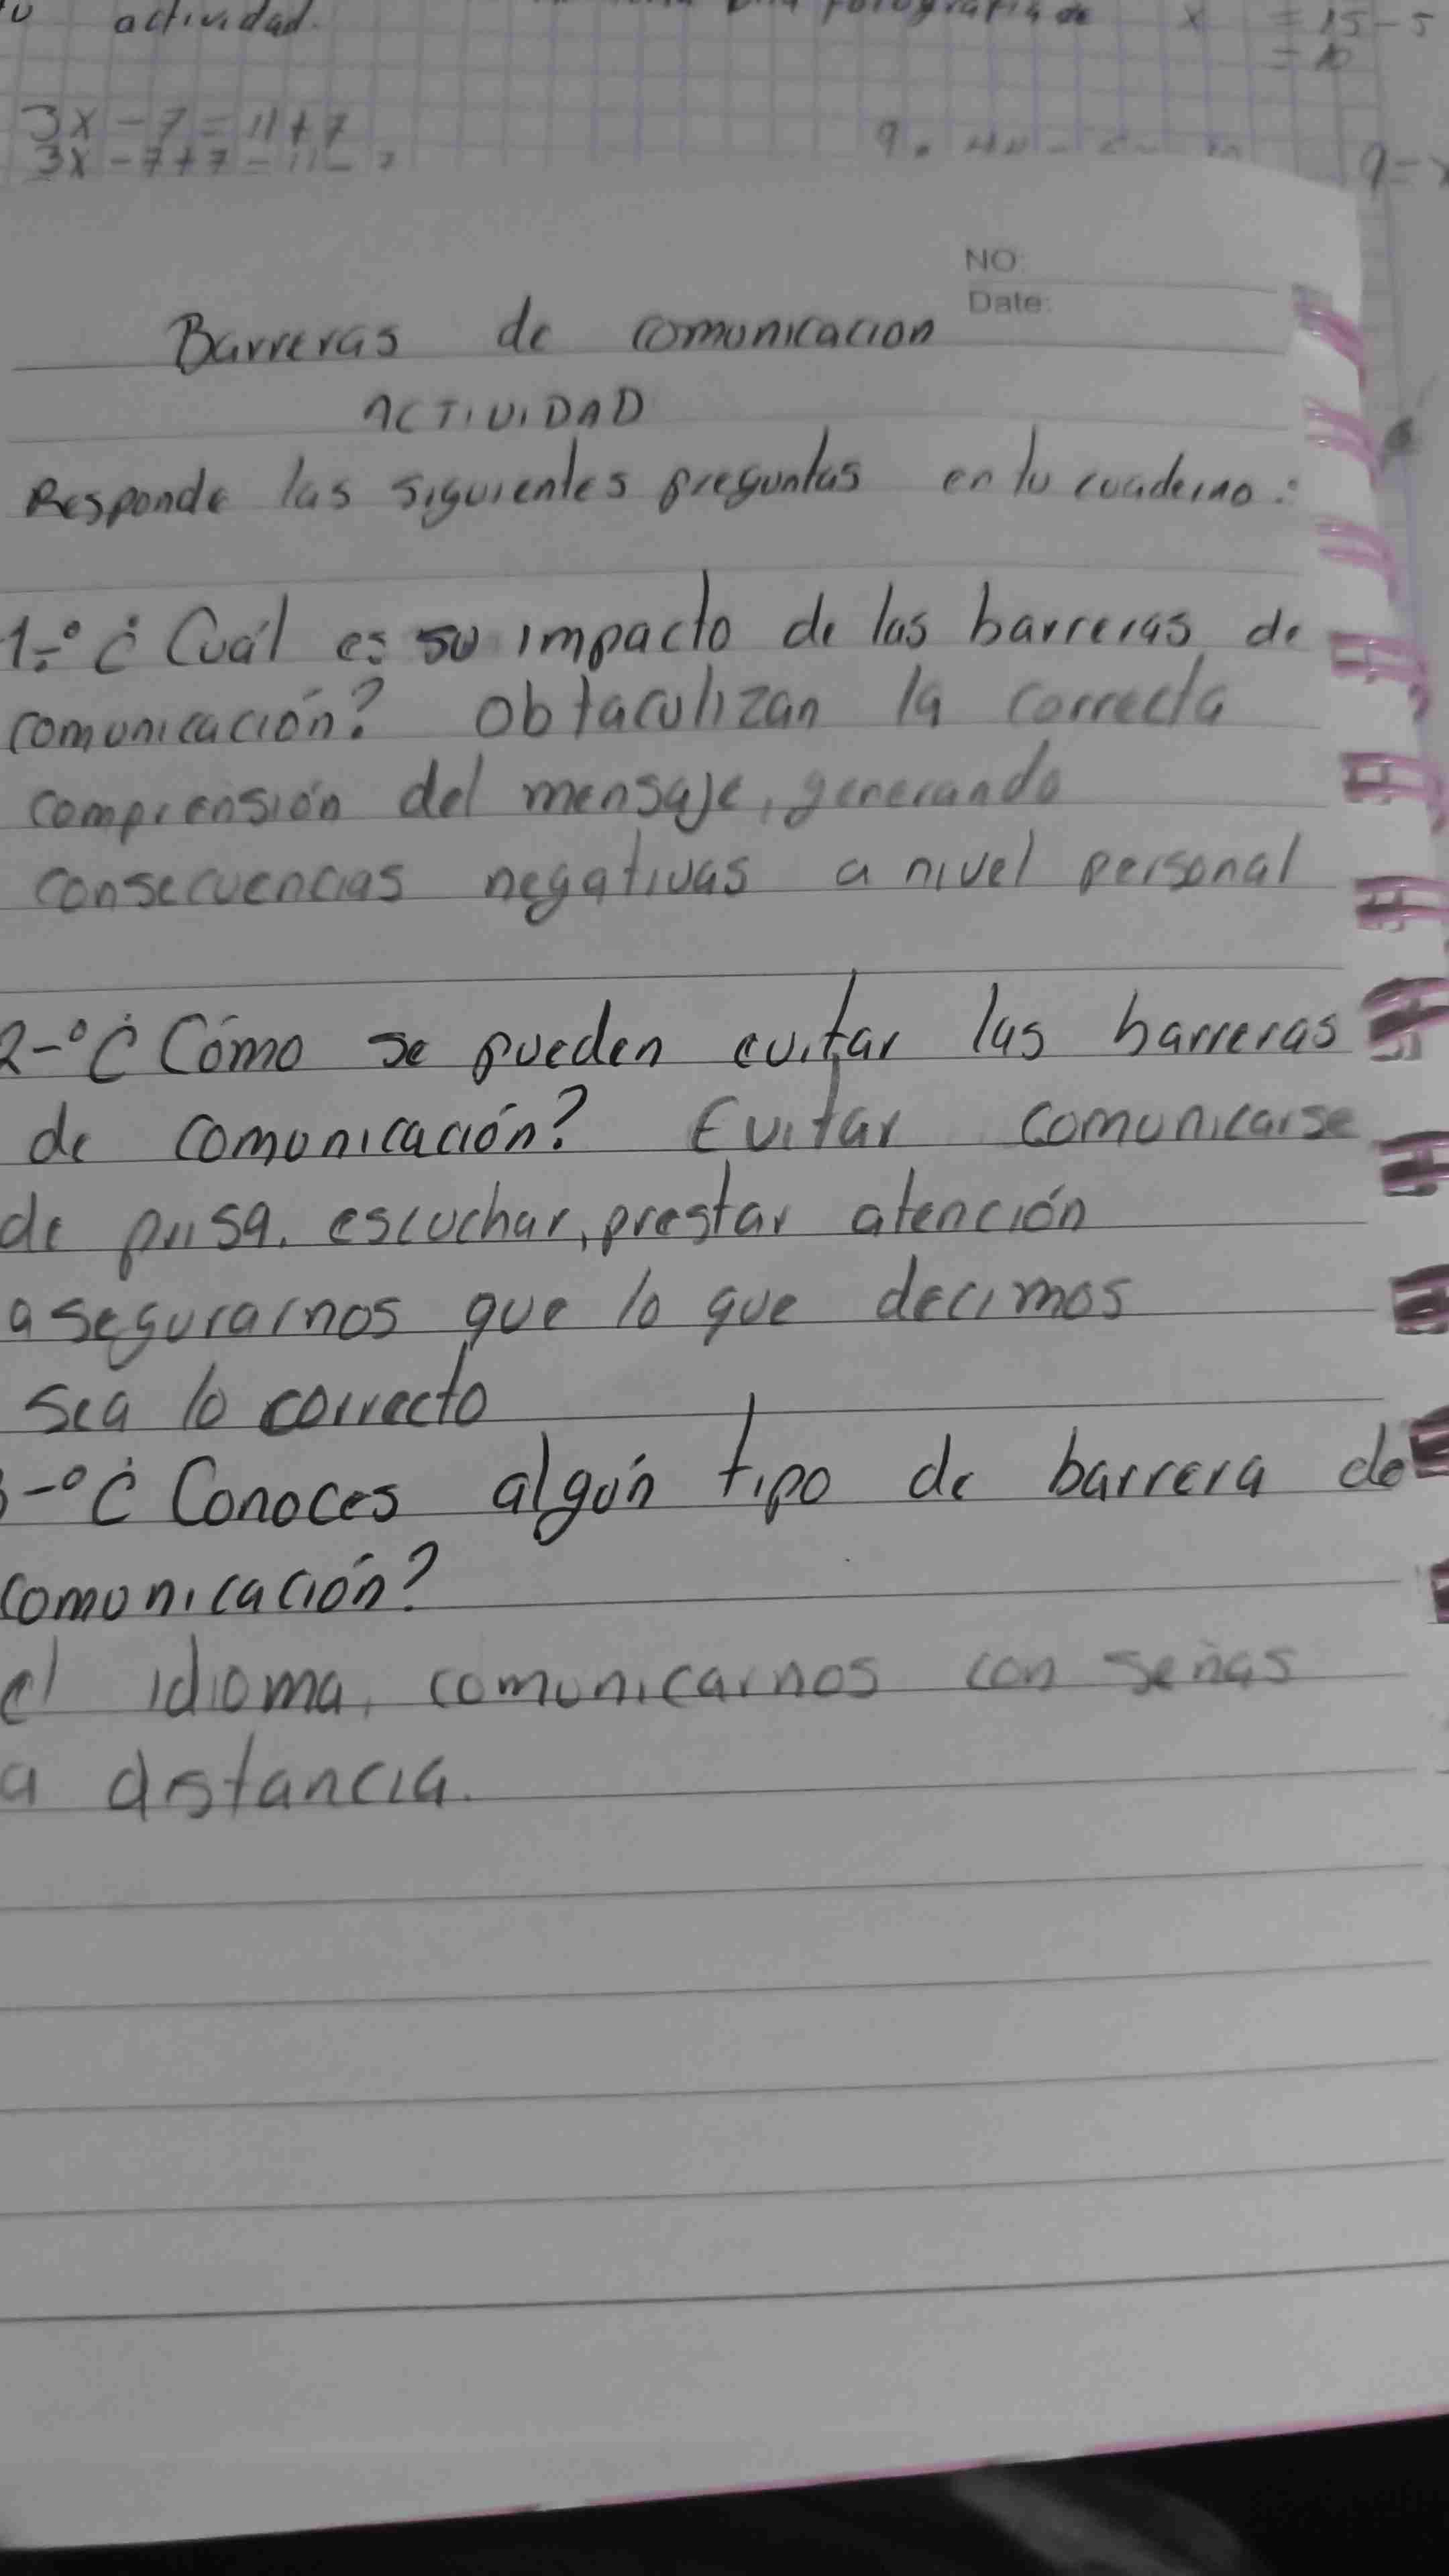 actividad.
x = 15 - 5
= 10
3x - 7 = 11 + 7
3x - 7 + 7 = 11 -
9 = x
NO:
Date:
Barreras de comunicacion
ACTIVIDAD
Responde las siguientes preguntas en tu cuaderno:
1-° ¿Cuál es su impacto de las barreras de
comunicación? Obtaculizan la correcta
comprensión del mensaje, generando
consecuencias negativas a nivel personal
2-° ¿Cómo se pueden evitar las barreras
de comunicación? Evitar comunicarse
de prisa. escuchar, prestar atención
asegurarnos que lo que decimos
sea lo correcto
-° ¿Conoces algún tipo de barrera de
comunicación?
el idioma, comunicarnos con señas
a distancia.